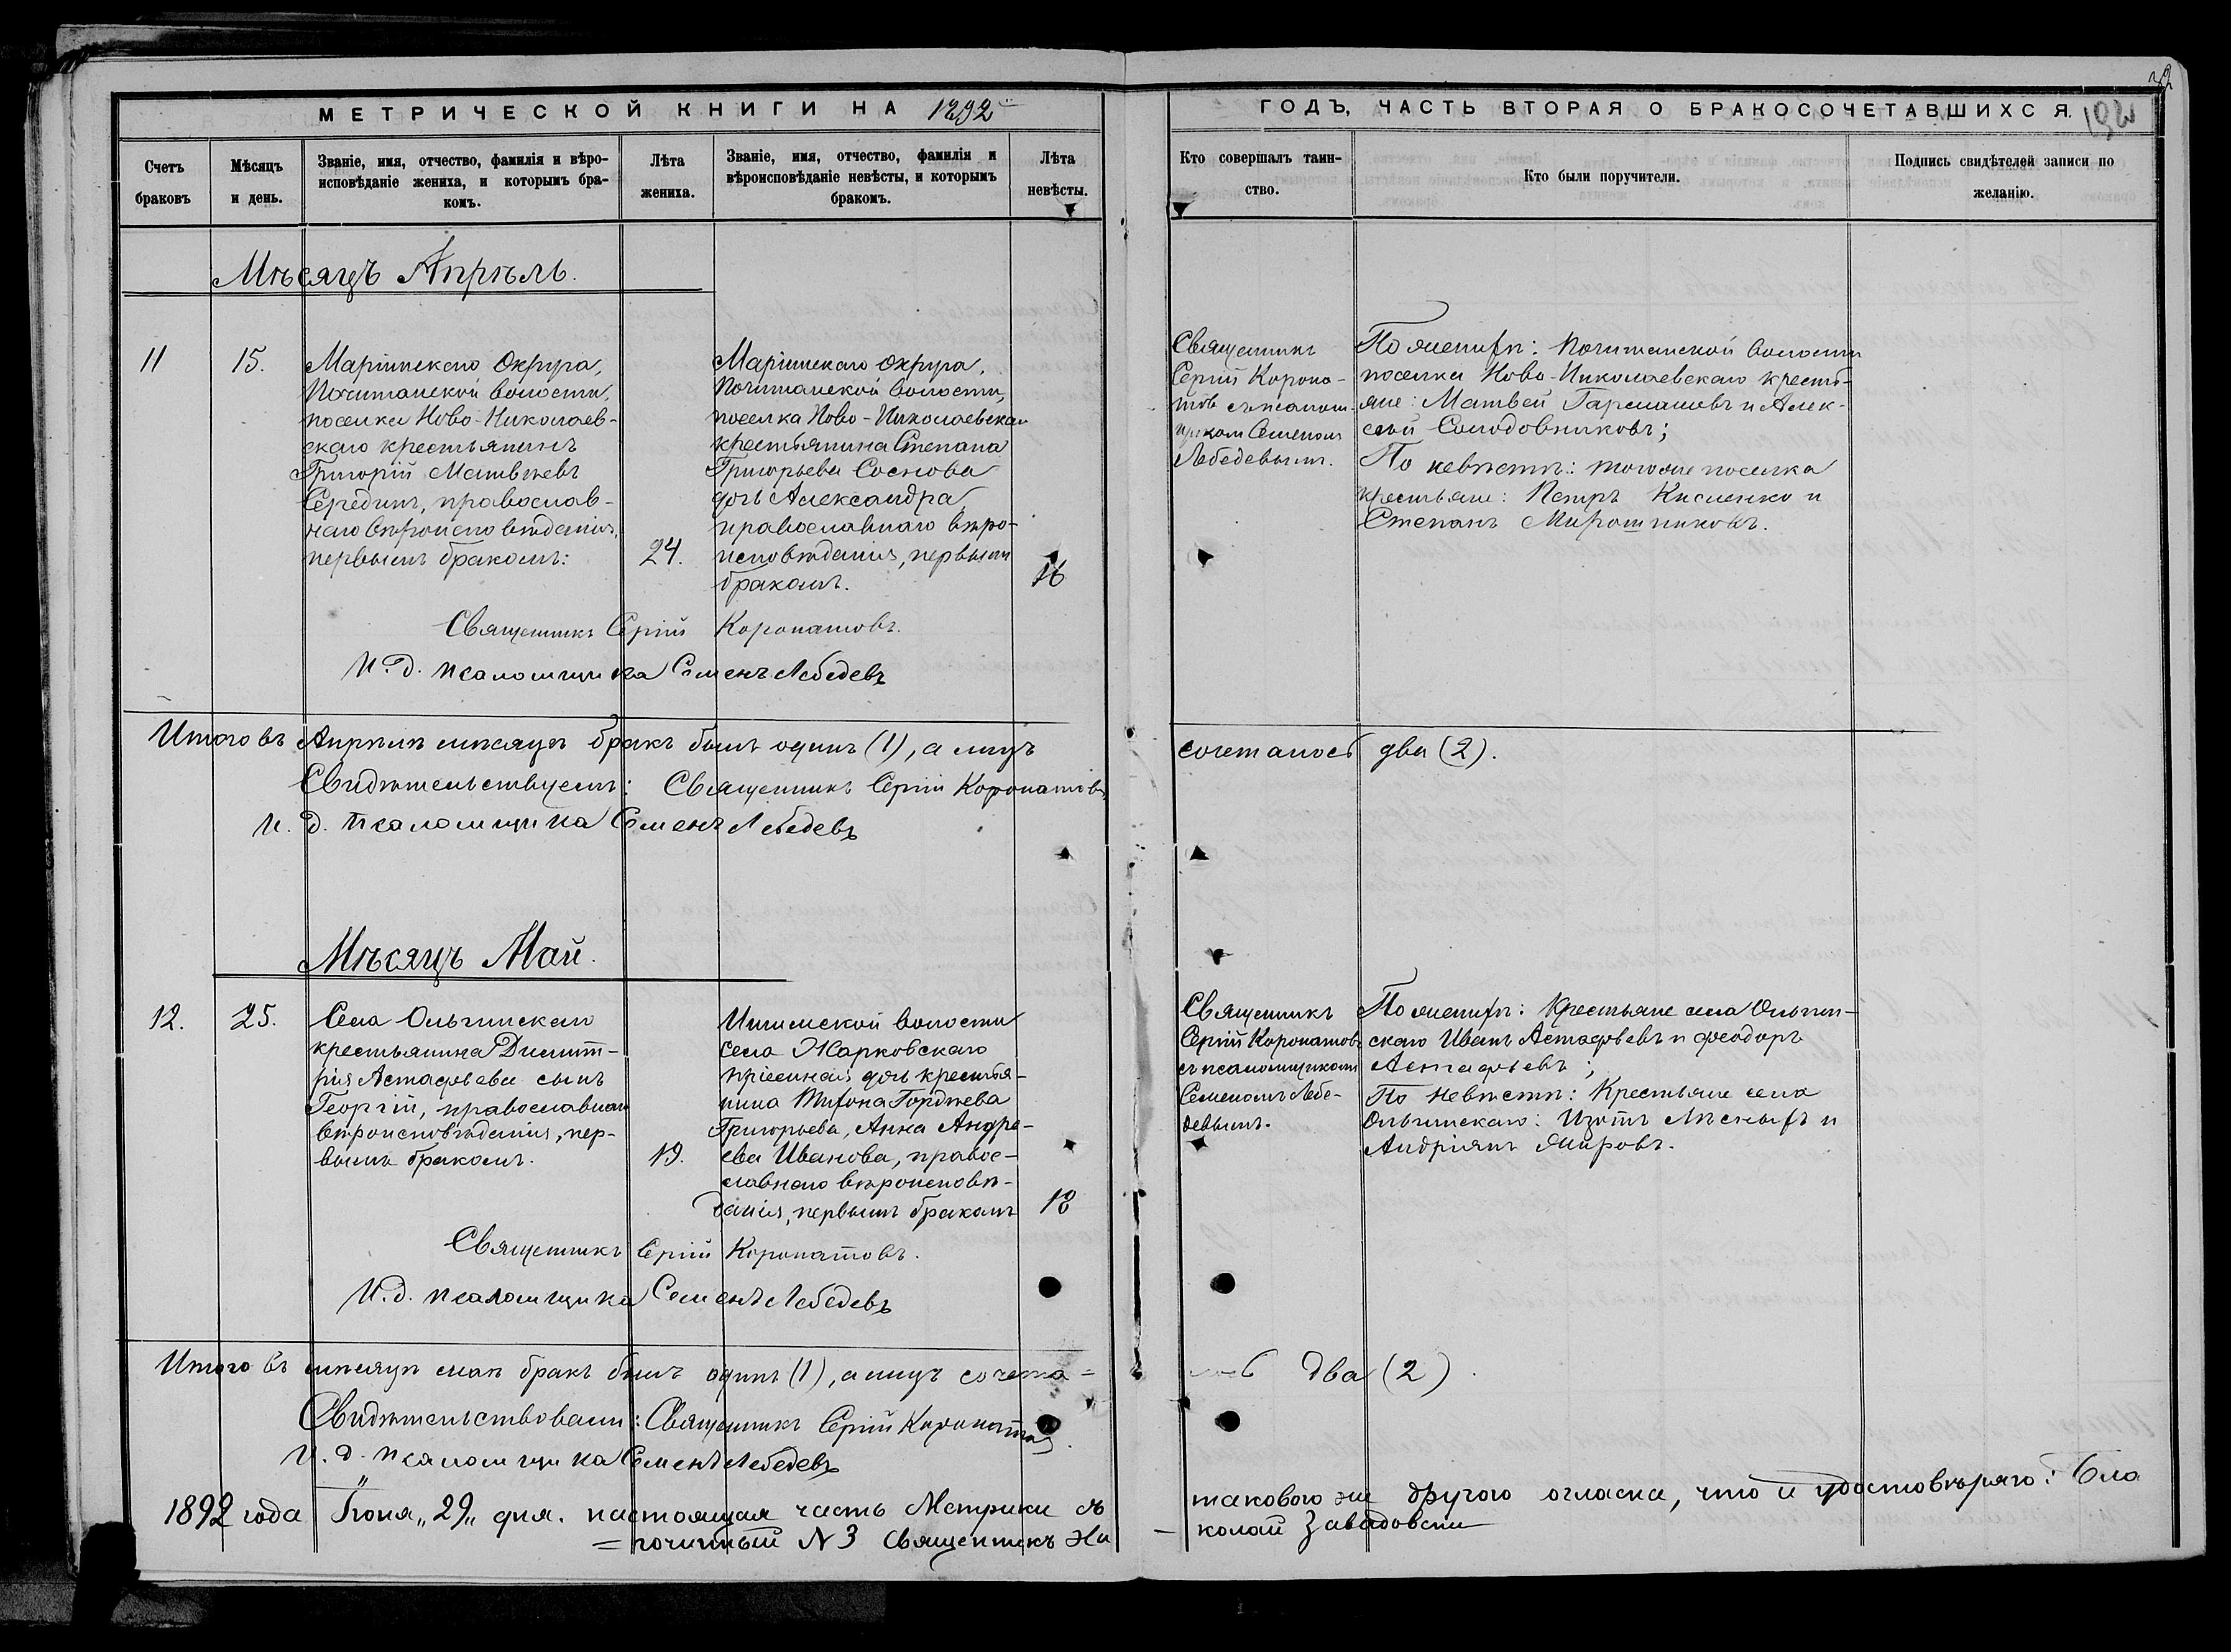 МЕТРИЧЕСКОЙ КНИГИ НА 1892
ГОДЪ, ЧАСТЬ ВТОРАЯ О БРАКОСОЧЕТАВШИХСЯ.
Счетъ браковъ
Мѣсяцъ и день.
Званіе, имя, отчество, фамилія и вѣро-
исповѣданіе жениха, и которымъ бра-
комъ.
Лѣта жениха.
Званіе, имя, отчество, фамилія и
вѣроисповѣданіе невѣсты, и которымъ
бракомъ.
Лѣта невѣсты.
Кто совершалъ таин-
ство.
Кто были поручители.
Подпись свидѣтелей записи по
желанію.
Мѣсяцъ Апрѣль.
11
15.
Маріинскаго Округа,
Почитанской волости,
поселка Ново-Николаев-
скаго крестьянинъ
Григорій Матвѣевъ
Середин, православ-
наго вѣроисповѣданія,
первымъ бракомъ:
24.
Маріинскаго округа,
Почитанской волости,
поселка Ново-Николаевскаго
крестьянина Степана
Григорьева Соснова
дочь Александра,
православнаго вѣро-
исповѣданія, первымъ
бракомъ.
16
Священникъ
Сергій Корона-
товъ съ псалом-
щикомъ Семеномъ
Лебедевымъ.
По женихѣ: Почитанской волости
поселка Ново-Николаевскаго кресть-
яне: Матвей Гармашовъ и Алек-
сей Солодовниковъ;
По невѣстѣ: тогоже поселка
крестьяне: Петръ Кисленко и
Степанъ Мирошниковъ.
Священникъ Сергій Коронатовъ.
И.д. псаломщика Семенъ Лебедевъ
Итого въ Апрѣлѣ мѣсяцѣ бракъ былъ одинъ (1), а лицъ
сочеталось два (2).
Свидѣтельствуемъ: Священникъ Сергій Коронатовъ,
И. д. псаломщика Семенъ Лебедевъ
Мѣсяцъ Май.
12.
25.
Села Ольгинскаго
крестьянина Димит-
рія Астафьева сынъ
Георгій, православнаго
вѣроисповѣданія, пер-
вымъ бракомъ.
19.
Ишимской волости
села Жарковскаго
пріемная дочь крестья-
нина Тихона Гордѣева
Григорьева, Анна Андре-
ева Иванова, правос-
лавнаго вѣроисповѣ-
данія, первымъ бракомъ
18
Священникъ
Сергій Коронатовъ
съ псаломщикомъ
Семеномъ Лебе-
девымъ.
По женихѣ: Крестьяне села Ольгин-
скаго Иванъ Астафьевъ и Феодоръ
Астафьевъ;
По невѣстѣ: Крестьяне села
Ольгинскаго: Изотъ Лѣсныхъ и
Андріянъ Мировъ.
Священникъ Сергій Коронатовъ.
И.д. псаломщика Семенъ Лебедевъ
Итого въ мѣсяцѣ маѣ бракъ былъ одинъ (1), а лицъ сочета=
два (2)
Свидѣтельствовали: Священникъ Сергій Коронатовъ.
И. д. псаломщика Семенъ Лебедевъ
1892 года Іюня „29„ дня. настоящая часть Метрики съ
таковою же другою согласна, что и удостовѣряю: Бла
=гочинный № 3 Священникъ Ни
колай Завадовскій